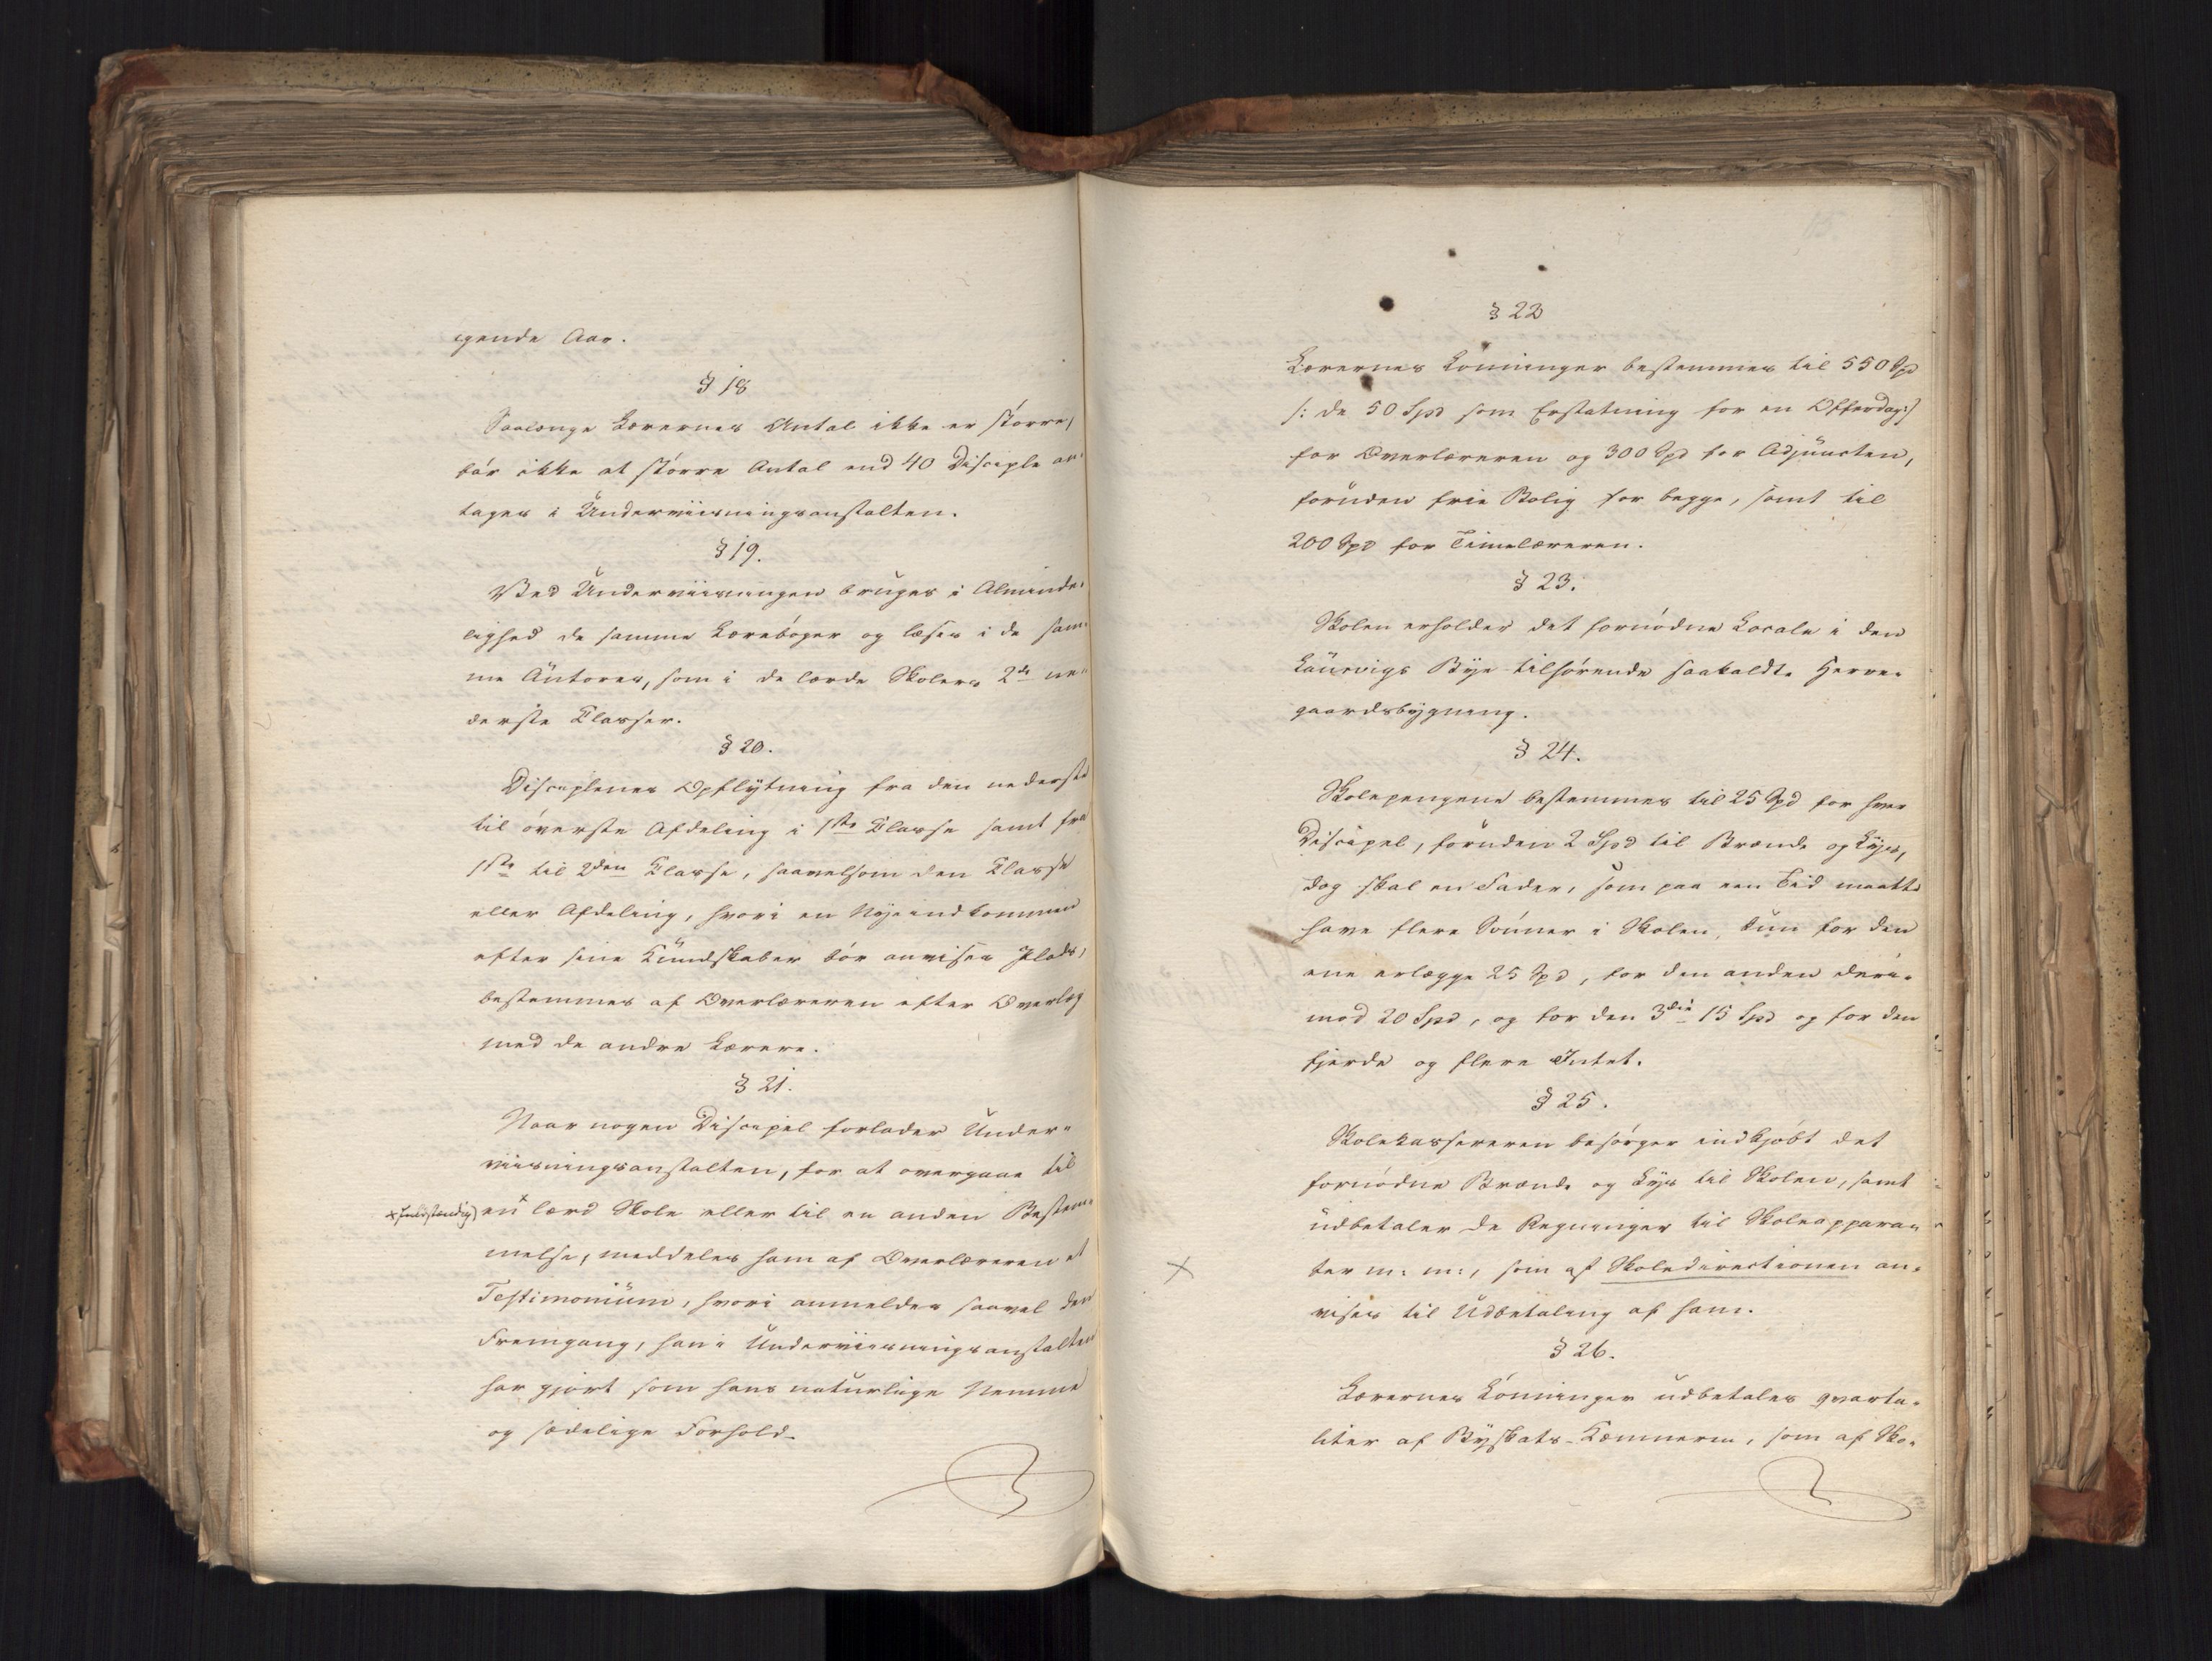 gende Aar.
§ 18
Saalænge Lærernes Antal ikke er større,
bør ikke at større Antal end 40 Disciple an-
tages i Underviisningsanstalten.
§ 19.
Ved Underviisningen bruges i Alminde-
lighed de samme Lærebøger og læses i de sam-
me Autores, som i de lærde Skolers 2de ne-
derste Classer.
§ 20.
Disciplenes Opflytning fra den nederste
til øverste Afdeling i 1ste Classe samt fra
1ste til 2den Classe, saavelsom den Classe
eller Afdeling, hvori en Nyeindkommen
efter sine Kundskaber bør anvises Plads,
bestemmes af Overlæreren efter Overlæg
med de andre Lærere.
§ 21.
Naar nogen Discipel forlader Under-
viisningsanstalten, for at overgaae til
× fuldstændig) en × lærd Skole eller til en anden Bestem-
melse, meddeles ham af Overlæreren et
Testimonium, hvori anmeldes saavel den
Fremgang, han i Underviisningsanstalten
har gjort som hans naturlige Nemme
og sædelige Forhold.
§ 22
Lærernes Lønninger bestemmes til 550 Spd
/: de 50 Spd som Erstatning for en Offerdag:/
for Overlæreren og 300 Spd for Adjuncten,
foruden frie Bolig for begge, samt til
200 Spd for Timelæreren.
§ 23.
Skolen erholder det fornødne Locale i den
Laurvigs Bye tilhørende saakaldte Herre-
gaardsbygning.
§ 24.
Skolepengene bestemmes til 25 Spd for hver
Discipel, foruden 2 Spd til Brænde og Lys,
dog skal en Fader, som paa een Tid maatte
have flere Sønner i Skolen, kun for den
ene erlægge 25 Spd, for den anden deri-
mod 20 Spd, og for den 3die 15 Spd og for den
fjerde og flere Intet.
§ 25.
Skolekassereren besørger indkjøbt det
fornødne Brænde og Lys til Skolen, samt
udbetaler de Regninger til Skoleappara-
× ter m: m:, som af Skoledirectionen an-
vises til Udbetaling af ham.
§ 26.
Lærernes Lønninger udbetales qvarta-
liter af Byskats-Kæmneren, som af Sko-